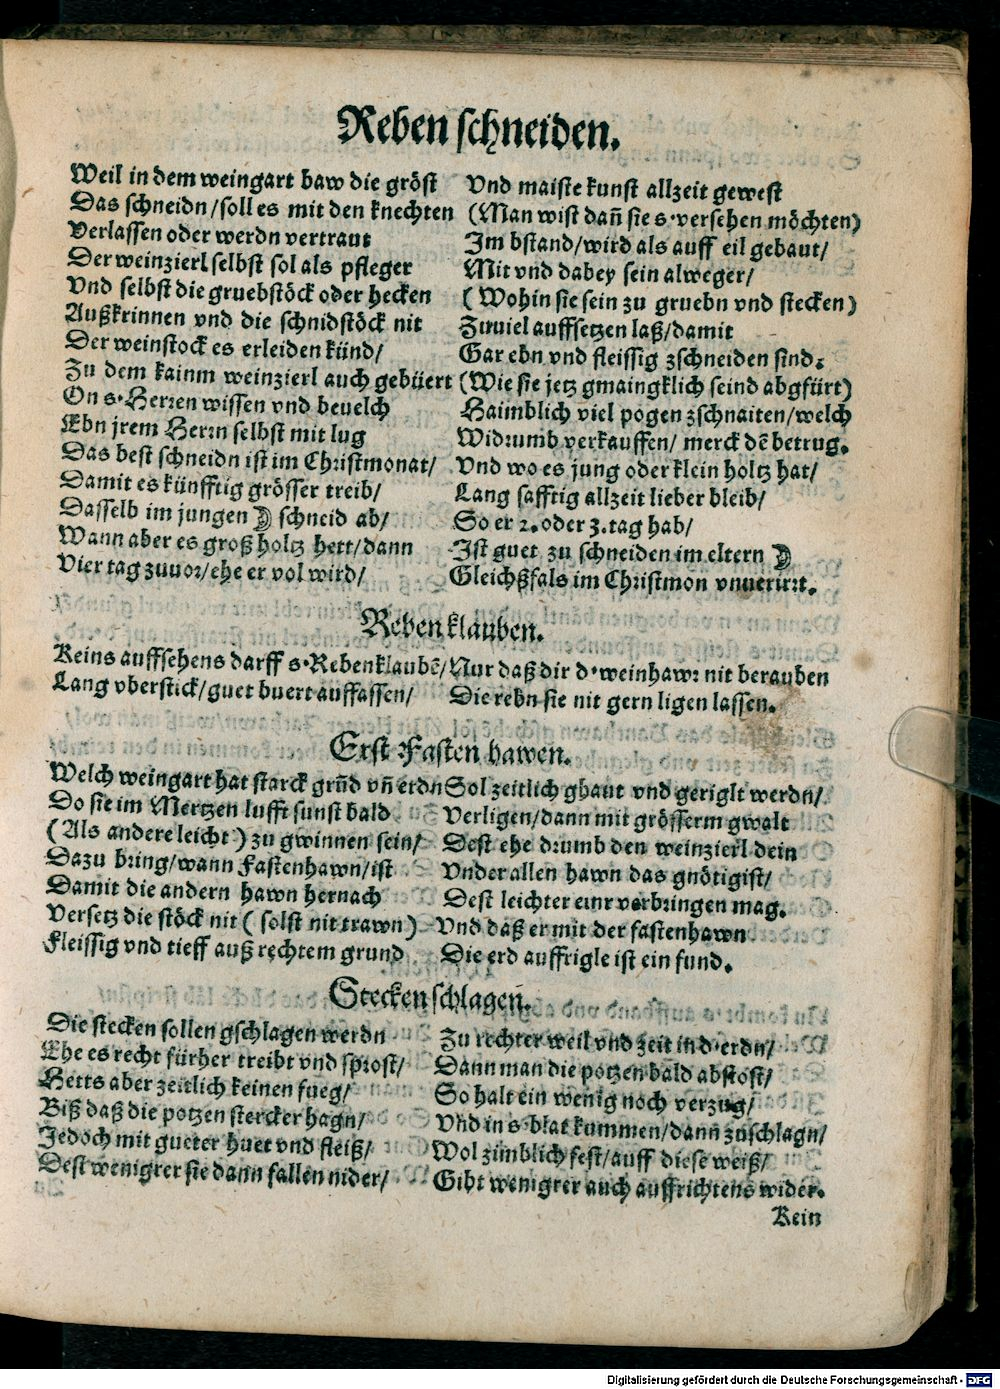 Reben schneiden.
Weil in dem weingart baw die gröst Vnd maiste kunst allzeit gewest
Das schneidn/soll es mit den knechten (Man wist dañ sie s·versehen möchten)
Verlassen oder werdn vertraut Im bstand/wird als auff eil gebaut/
Der weinzierl selbst sol als pfleger Mit vnd dabey sein alweger/
Vnd selbst die gruebstöck oder hecken (Wohin sie sein zu gruebn vnd stecken)
Außkrinnen vnd die schnidstöck nit Zuuiel auffsetzen laß/damit
Der weinstock es erleiden künd/ Gar ebn vnd fleissig zschneiden sind.
Zu dem kainm weinzierl auch gebüert (Wie sie jetz gmaingklich seind abgfürt)
On s·Herren wissen vnd beuelch Haimblich viel pogen zschnaiten/welch
Ebn jrem Herrn selbst mit lug Widrumb verkauffen/ merck dē betrug.
Das best schneidn ist im Christmonat/ Vnd wo es jung oder klein holtz hat/
Damit es künfftig grösser treib/ Lang safftig allzeit lieber bleib/
Dasselb im jungen ☽ schneid ab/ So er 2. oder 3. tag hab/
Wann aber es groß holtz hett/dann Ist guet zu schneiden im eltern ☽
Vier tag zuuor/ehe er vol wird/ Gleichßfals im Christmon vnuerirrt.
Reben klauben.
Keins auffsehens darff s·Rebenklaubē/ Nur daß dir d·weinhawr nit berauben
Lang vberstick/guet buert auffassen/ Die rebn sie nit gern ligen lassen.
Erst Fasten hawen.
Welch weingart hat starck grūd vñ erdn Sol zeitlich ghaut vnd geriglt werdn/
Do sie im Mertzen lufft sunst bald Verligen/dann mit grösserm gwalt
(Als andere leicht) zu gwinnen sein/ Dest ehe drumb den weinzierl dein
Dazu bring/wann Fastenhawn/ist Vnder allen hawn das gnötigist/
Damit die andern hawn hernach Dest leichter einr verbringen mag.
Versetz die stöck nit (solst nit trawn) Vnd daß er mit der fastenhawn
Fleissig vnd tieff auß rechtem grund Die erd auffrigle ist ein fund.
Stecken schlagen.
Die stecken sollen gschlagen werdn Zu rechter weil vnd zeit in d·erdn/
Ehe es recht fürher treibt vnd sprost/ Dann man die potzen bald abstost/
Hetts aber zeitlich keinen fueg/ So halt ein wenig noch verzug/
Biß daß die potzen stercker hagn/ Vnd in s·blat kummen/dann zuschlagn/
Jedoch mit gueter huet vnd fleiß/ Wol zimblich fest/auff diese weiß/
Dest wenigrer sie dann fallen nider/ Gibt wenigrer auch auffrichtens wider.
Kein
Digitalisierung gefördert durch die Deutsche Forschungsgemeinschaft - DFG